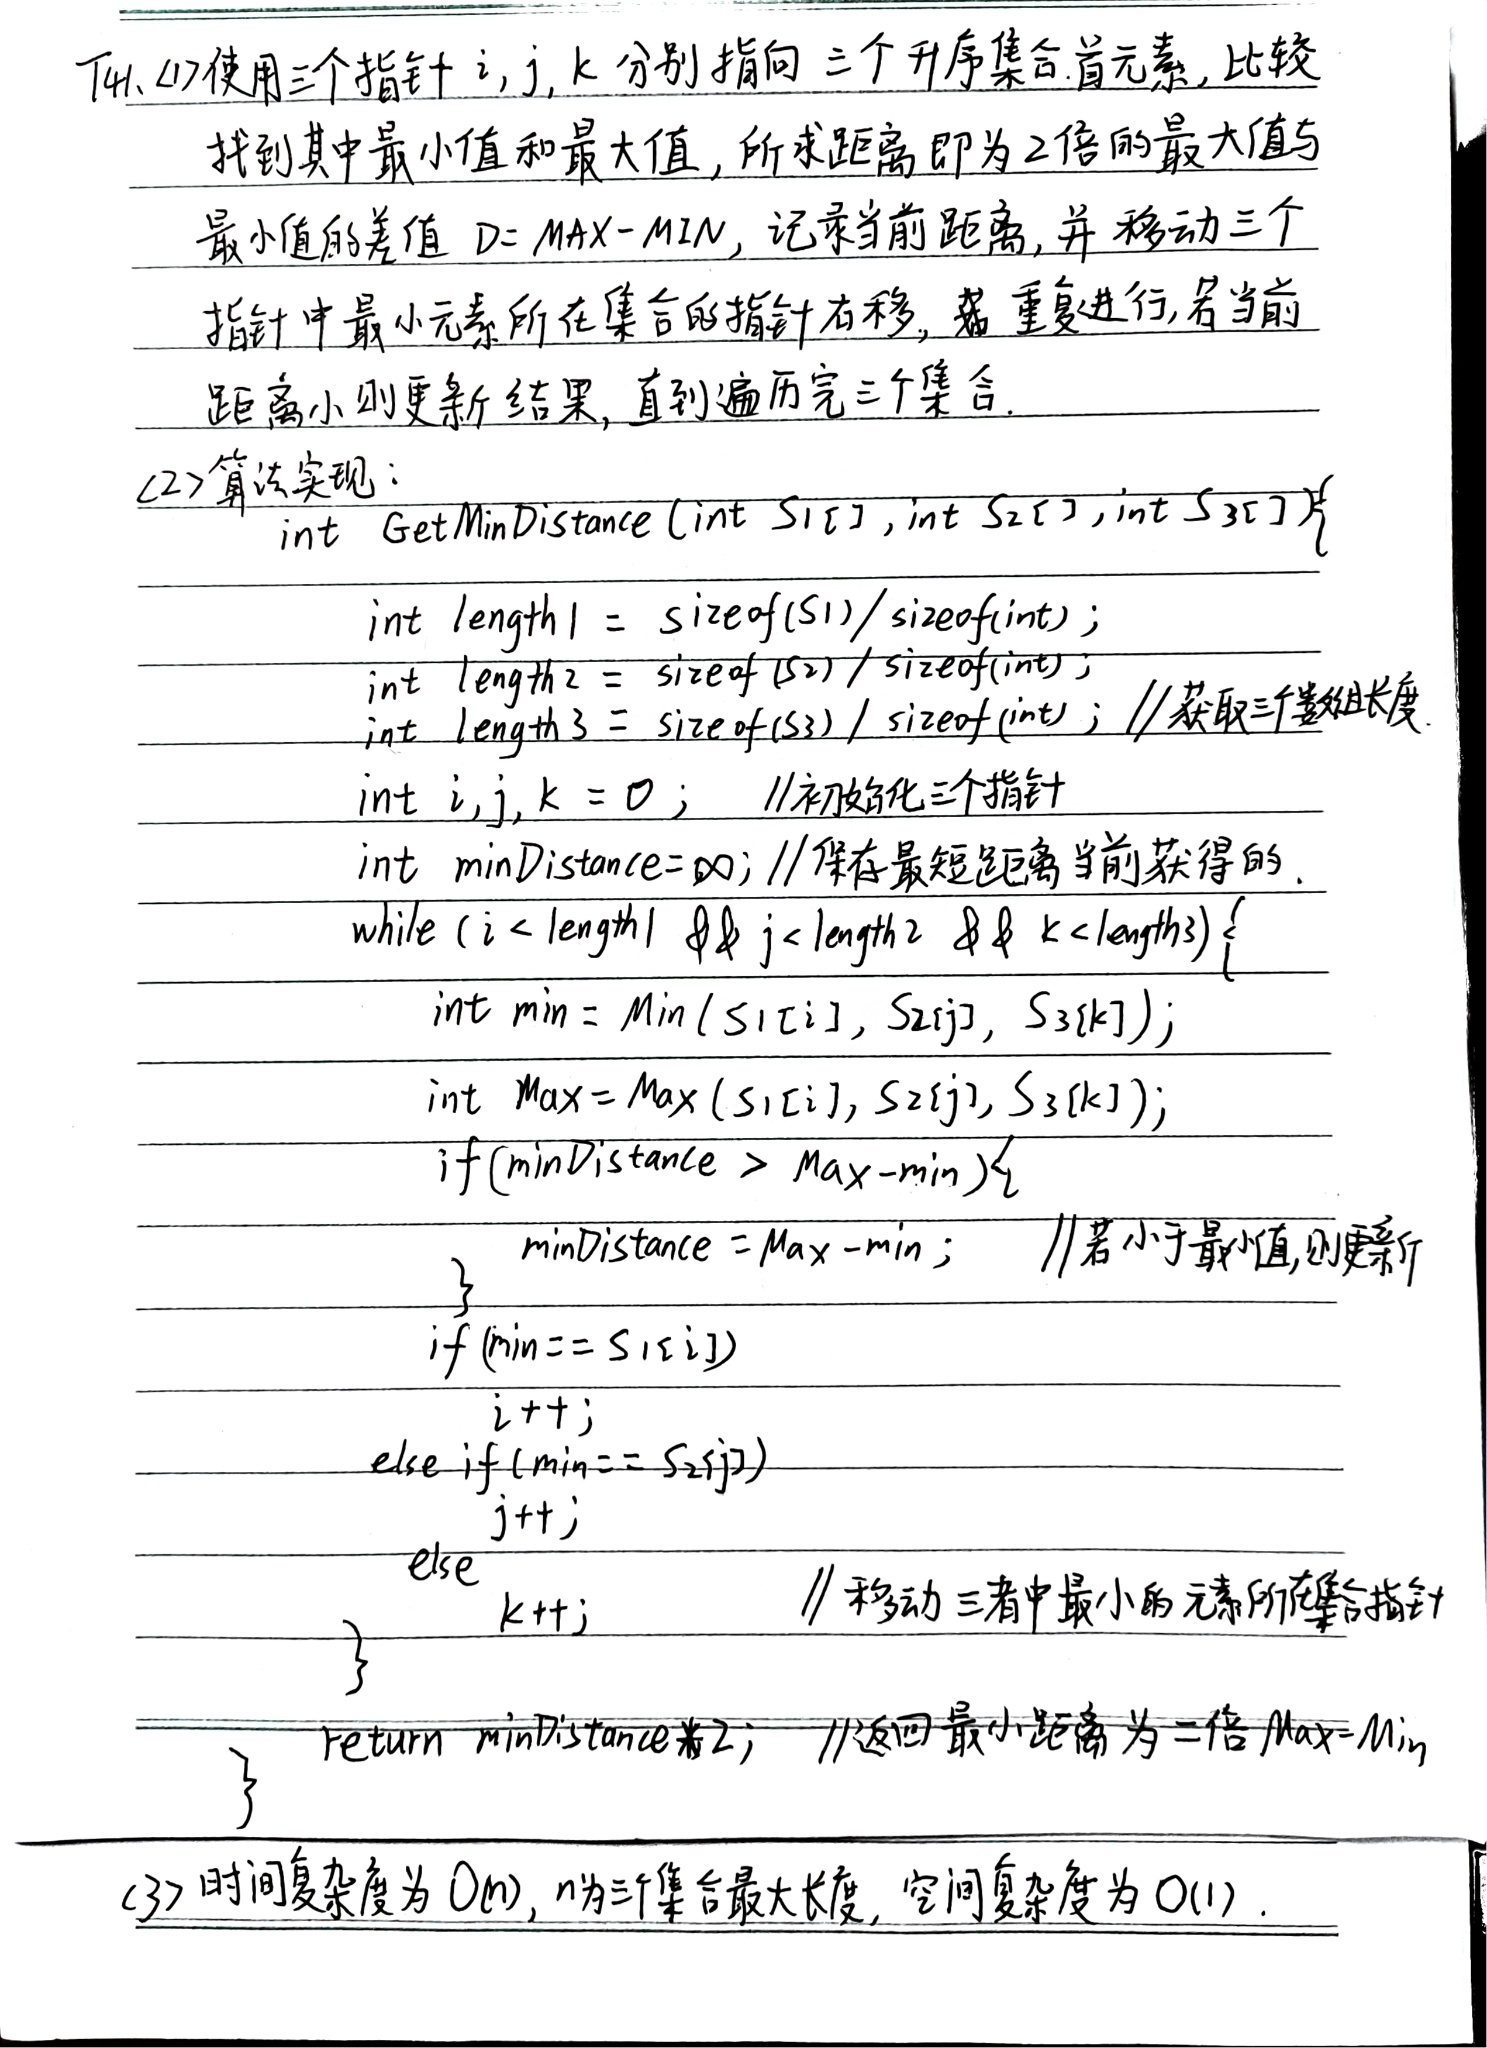 T41.(1)使用三个指针 i, j, k 分别指向 三个升序集合首元素, 比较
找到其中最小值和最大值, 所求距离即为2倍的最大值与
最小值的差值 D=MAX-MIN, 记录当前距离, 并移动三个
指针中最小元素所在集合的指针右移, 重复进行, 若当前
距离小则更新结果, 直到遍历完三个集合.
(2)算法实现:
int GetMinDistance(int S1[], int S2[], int S3[]){
int length1 = sizeof(S1)/sizeof(int);
int length2 = sizeof(S2)/sizeof(int);
int length3 = sizeof(S3)/sizeof(int); //获取三个数组长度.
int i, j, k = 0; //初始化三个指针
int minDistance=∞; //保存最短距离当前获得的.
while (i<length1 && j<length2 && k<length3){
int min = Min(S1[i], S2[j], S3[k]);
int Max = Max(S1[i], S2[j], S3[k]);
if(minDistance > Max-min){
minDistance = Max-min; //若小于最小值,则更新
}
if(min==S1[i])
i++;
else if(min==S2[j])
j++;
else
k++; //移动三者中最小的元素所在集合指针
}
return minDistance*2; //返回最小距离为二倍Max=Min
}
(3)时间复杂度为O(n), n为三个集合最大长度, 空间复杂度为O(1).